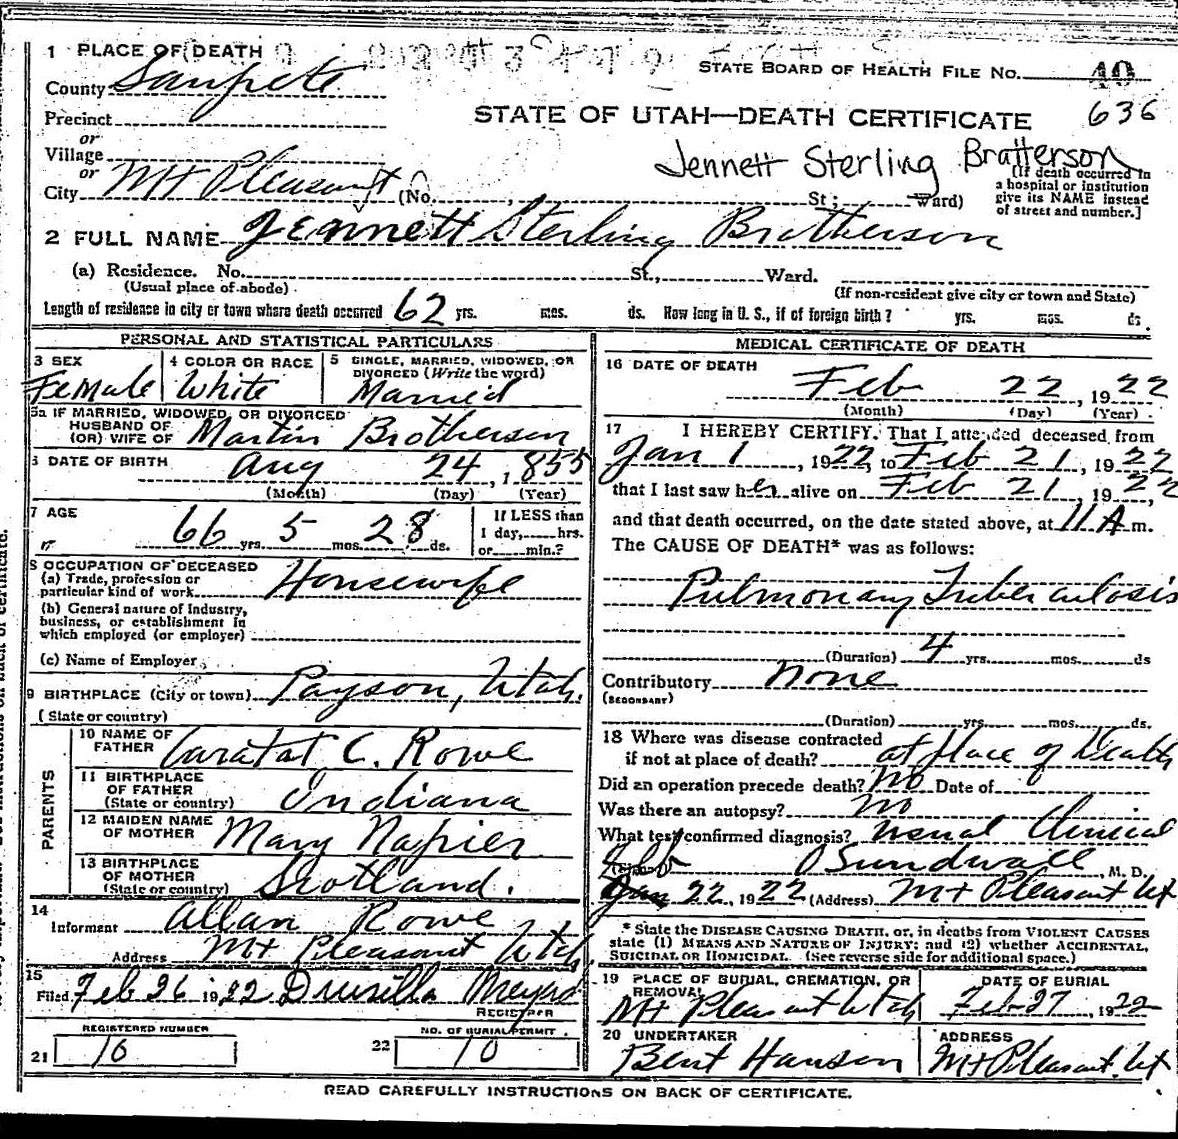 1 PLACE OF DEATH
STATE BOARD OF HEALTH FILE No. 40
County Sanpete
636
Precinct
STATE OF UTAH—DEATH CERTIFICATE
or
Village
Jennett Sterling Bratterson
or
City Mt Pleasant (No. St; Ward)
(If death occurred in
a hospital or institution
give its NAME instead
of street and number.]
2 FULL NAME Jennett Sterling Brotherson
(a) Residence. No. St., Ward.
(Usual place of abode)
(If non-resident give city or town and State)
Length of residence in city or town where death occurred 62 yrs. mos. ds. How long in U. S., if of foreign birth? yrs. mos. ds.
PERSONAL AND STATISTICAL PARTICULARS
3 SEX
Female
4 COLOR OR RACE
White
5 SINGLE, MARRIED, WIDOWED, OR
DIVORCED (Write the word)
Married
5a IF MARRIED, WIDOWED, OR DIVORCED
HUSBAND OF
(OR) WIFE OF Martin Brotherson
6 DATE OF BIRTH Aug 24, 1855
(Month) (Day) (Year)
7 AGE
66 yrs. 5 mos. 28 ds.
If LESS than
1 day, hrs.
or min.?
8 OCCUPATION OF DECEASED
(a) Trade, profession or
particular kind of work Housewife
(b) General nature of Industry,
business, or establishment in
which employed (or employer)
(c) Name of Employer
9 BIRTHPLACE (City or town) Payson, Utah.
(State or country)
PARENTS
10 NAME OF
FATHER C. Rowe
11 BIRTHPLACE
OF FATHER
(State or country) Indiana
12 MAIDEN NAME
OF MOTHER Mary Napier
13 BIRTHPLACE
OF MOTHER
(State or country) Scotland.
14
Informent Allan Rowe
Address Mt Pleasant Utah
15
Filed Feb 26 1922 Drusilla
REGISTRAR
REGISTERED NUMBER
21 16
NO. OF BURIAL PERMIT.
22 10
MEDICAL CERTIFICATE OF DEATH
16 DATE OF DEATH
Feb 22, 1922
(Month) (Day) (Year)
17 I HEREBY CERTIFY. That I attended deceased from
Jan 1, 1922, to Feb 21, 1922
that I last saw her alive on Feb 21, 1922,
and that death occurred, on the date stated above, at 11 A m.
The CAUSE OF DEATH* was as follows:
Pulmonary Tuberculosis
(Duration) 4 yrs. mos. ds
Contributory None
(SECONDARY)
(Duration) yrs. mos. ds.
18 Where was disease contracted
if not at place of death? at place of Death
Did an operation precede death? No Date of
Was there an autopsy? no
What test confirmed diagnosis? Usual Clinical
(Signed) O Sundwall, M. D.
Feb
Jan 22, 1922 (Address) Mt Pleasant Ut
* State the DISEASE CAUSING DEATH, or, in deaths from VIOLENT CAUSES
state (1) MEANS AND NATURE OF INJURY; and (2) whether ACCIDENTAL,
SUICIDAL OR HOMICIDAL. (See reverse side for additional space.)
19 PLACE OF BURIAL, CREMATION, OR
REMOVAL
Mt Pleasant Utah
DATE OF BURIAL
Feb 27, 1922
20 UNDERTAKER
Bent Hansen
ADDRESS
Mt Pleasant. Ut
READ CAREFULLY INSTRUCTIONS ON BACK OF CERTIFICATE.